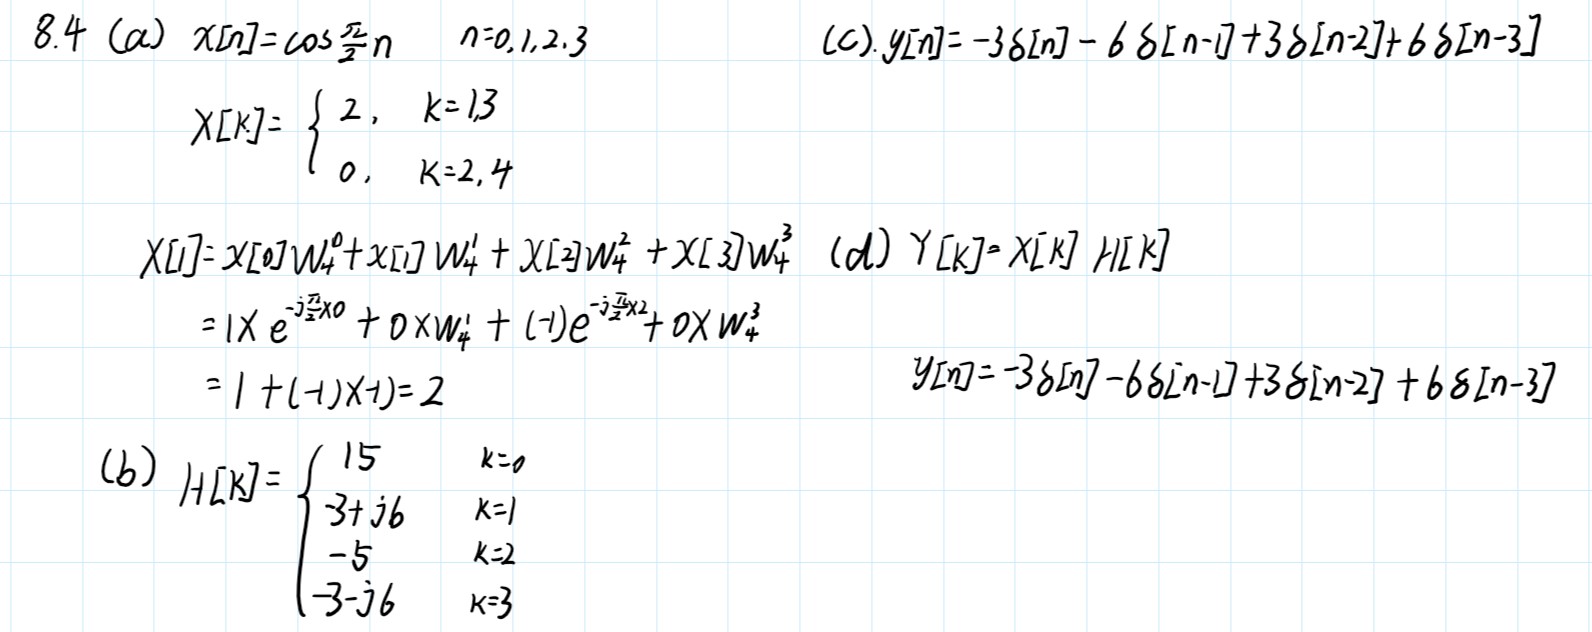 8.4 (a) x[n]=cos π/2 n   n=0,1,2,3
X[k]= { 2,   k=1,3
0,   k=2,4
X[1]=x[0]W₄⁰+x[1]W₄¹+x[2]W₄²+x[3]W₄³
=1×e^(-j π/2 ×0)+0×W₄¹+(-1)e^(-j π/2 ×2)+0×W₄³
=1+(-1)×-1)=2
(b) H[k]= { 15   k=0
-3+j6   k=1
-5   k=2
-3-j6   k=3
(c). y[n]=-3δ[n]-6δ[n-1]+3δ[n-2]+6δ[n-3]
(d) Y[k]=X[k] H[k]
y[n]=-3δ[n]-6δ[n-1]+3δ[n-2]+6δ[n-3]